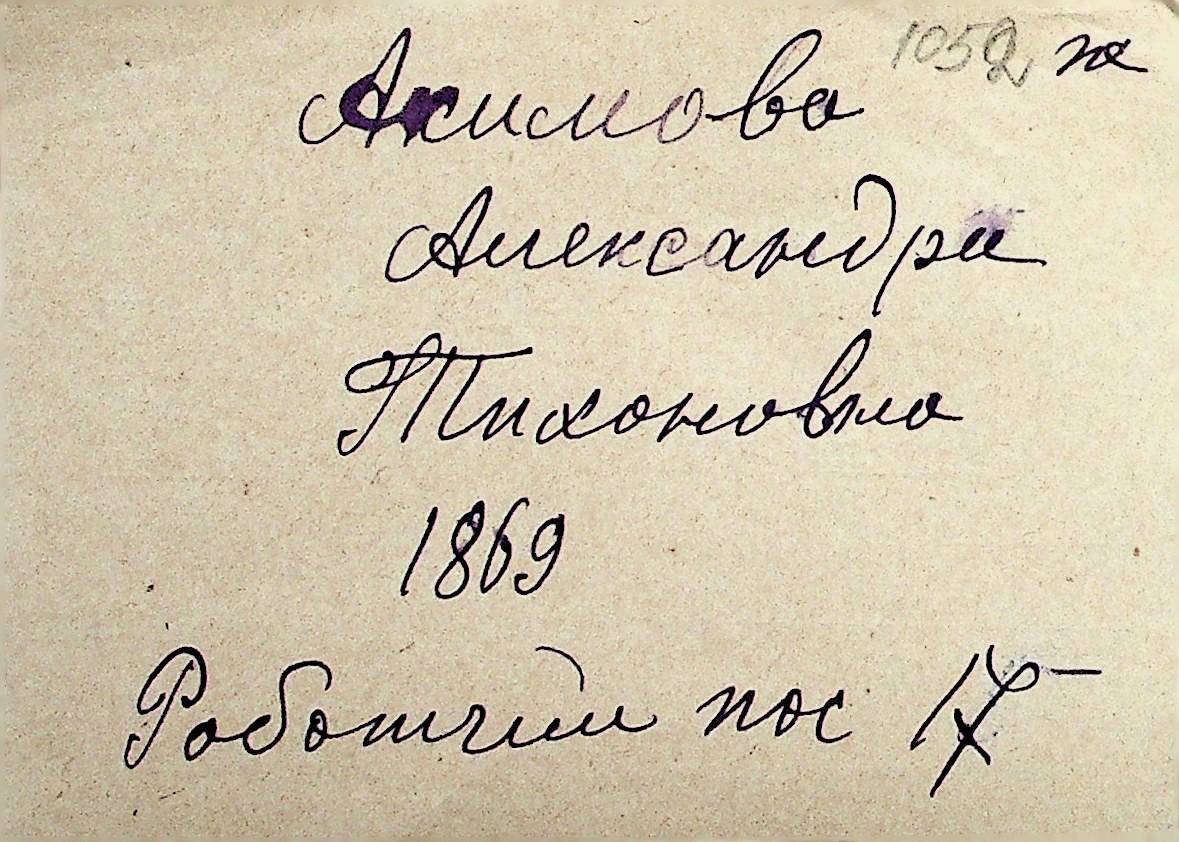 1052 ж
Акимова
Александра
Тихоновна
1869
Работчий пос